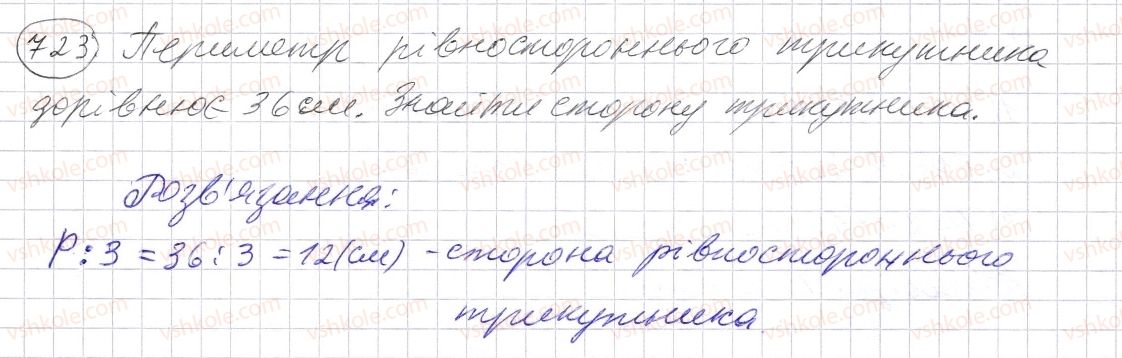 723 Периметр рівностороннього трикутника
дорівнює 36 см. Знайти сторону трикутника.
Розв'язання:
P : 3 = 36 : 3 = 12 (см) - сторона рівностороннього
трикутника